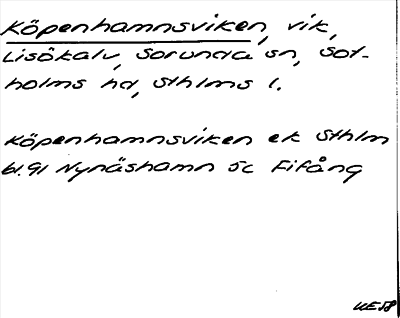 Köpenhamnsviken, vik,
Lisökalv, Sorunda sn, Sot-
holms hd, Sthlms l.
Köpenhamnsviken ek Sthlm
bl. 91 Nynäshamn 5c Fifång
UE58